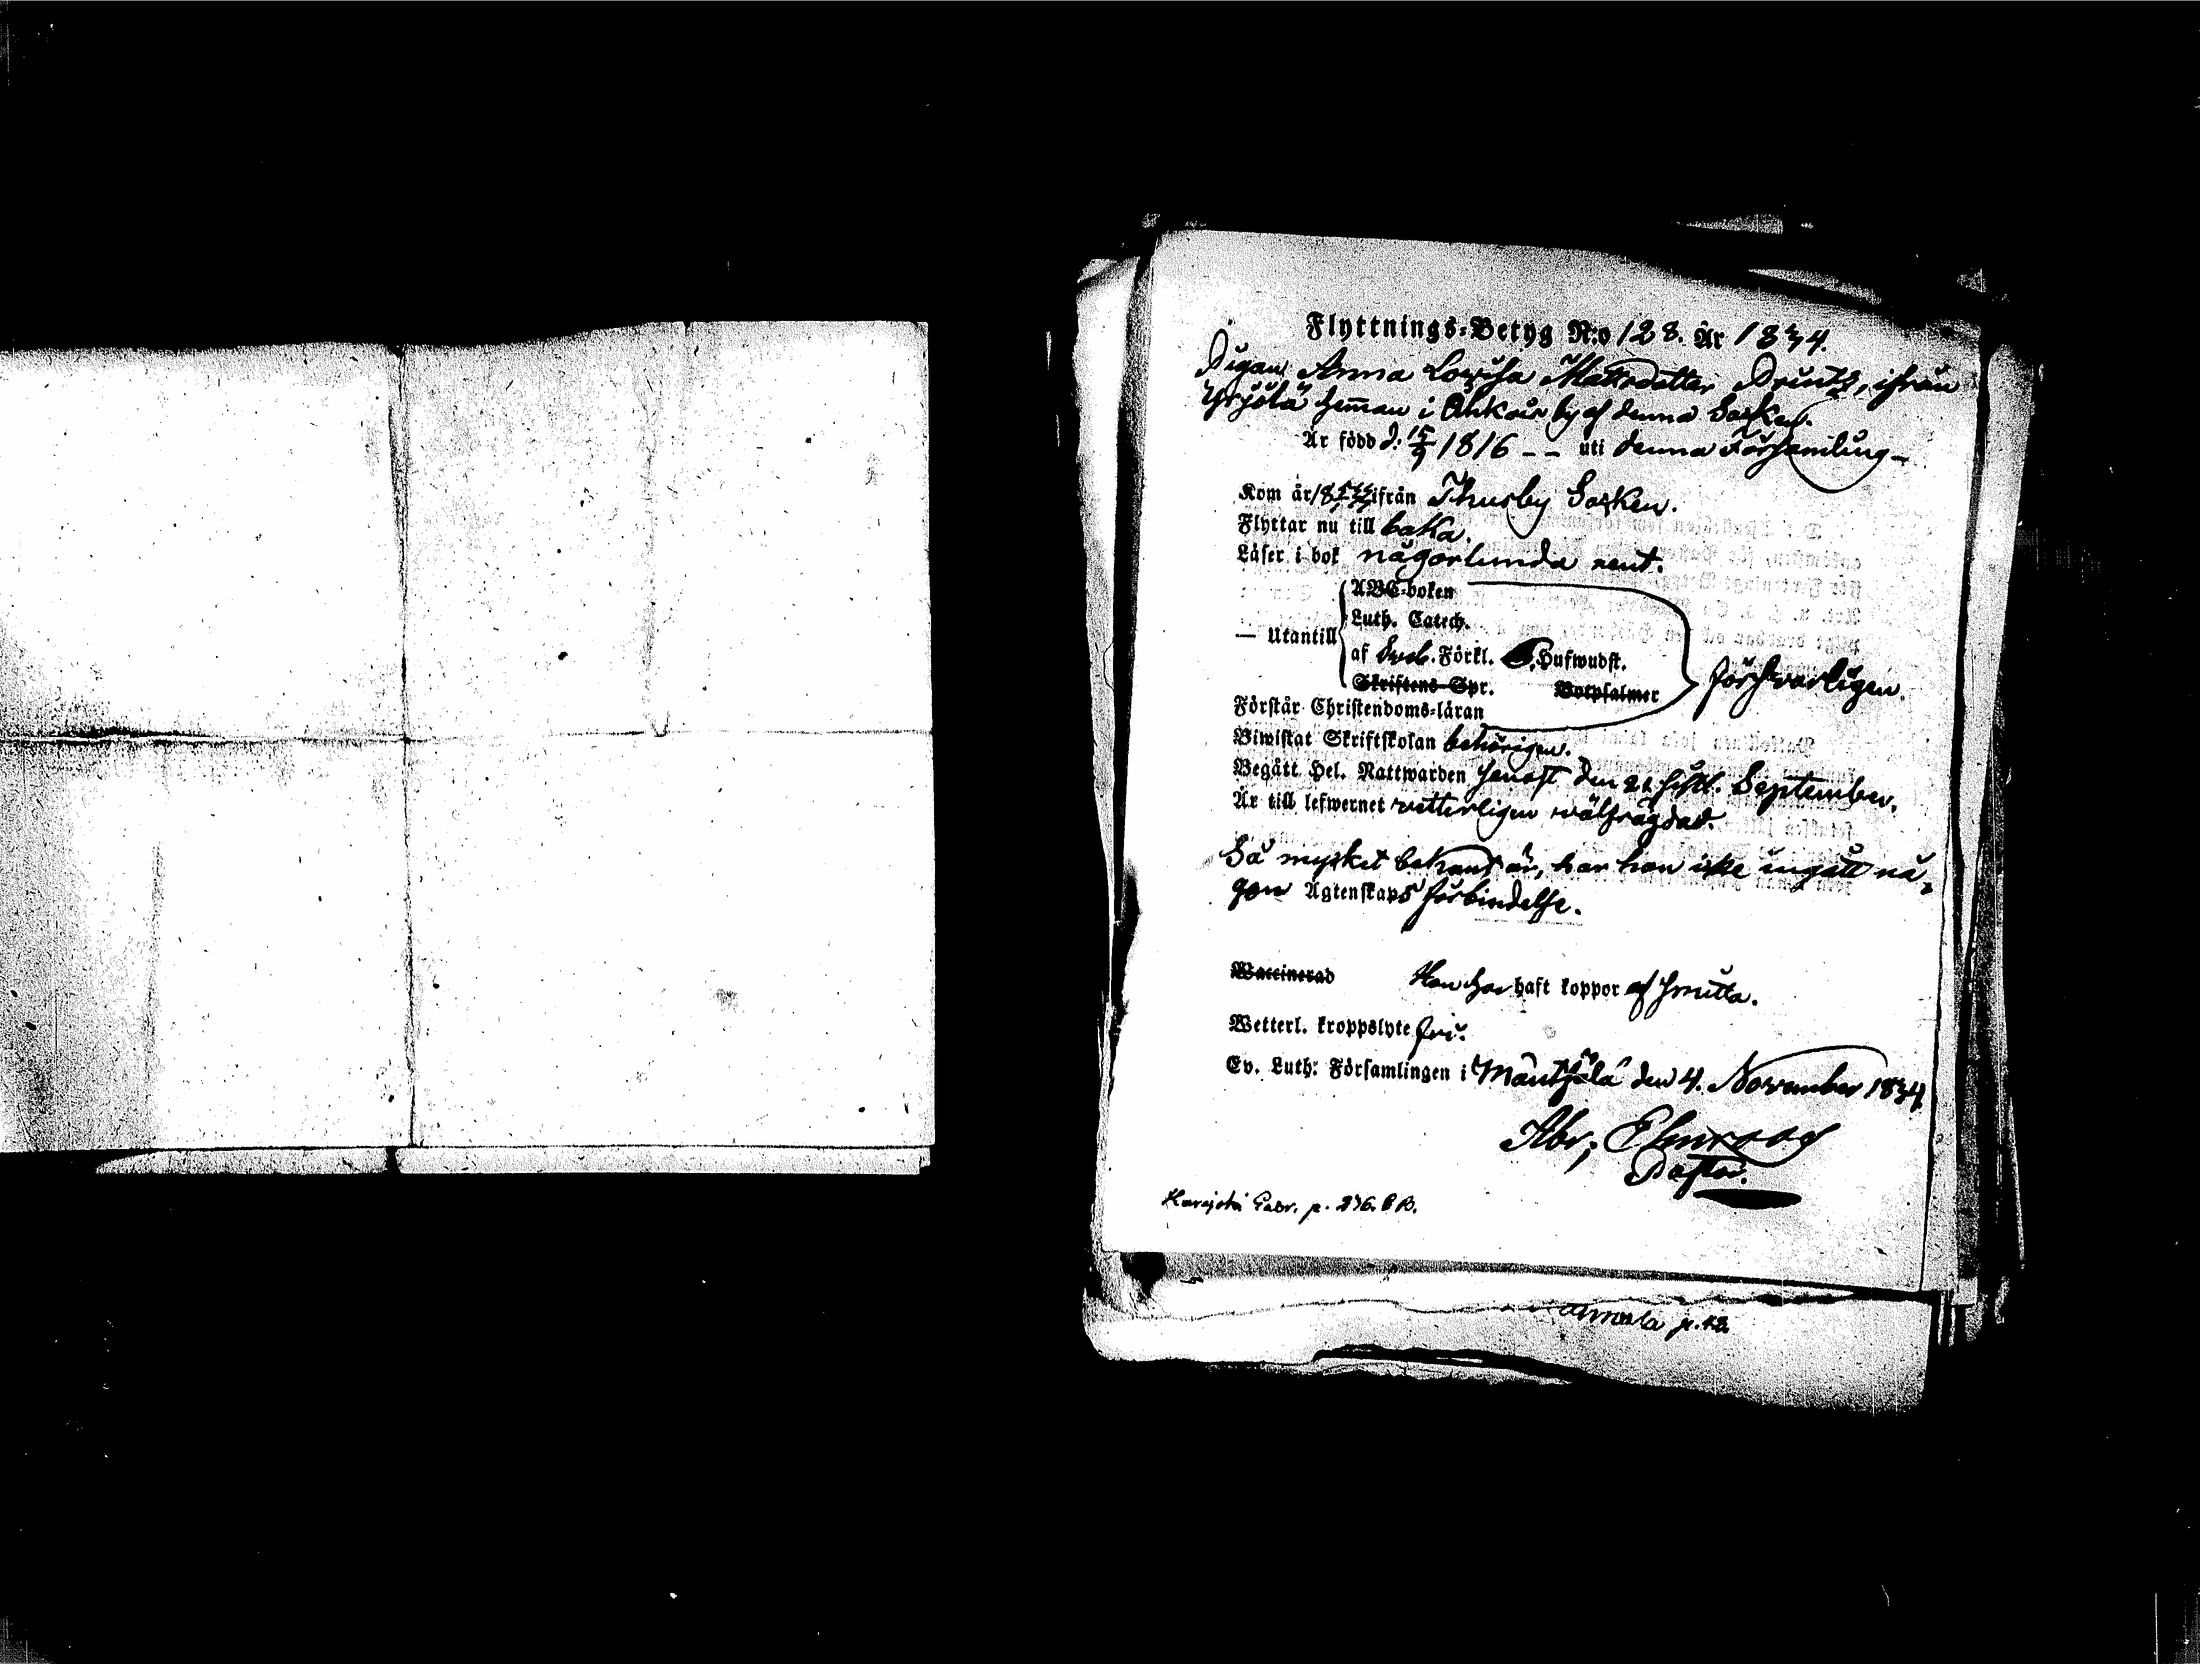 Flyttnings-Betyg N:o 128. År 1834.
Pigan Anna Lovisa Mattsdotter Printz, ifrån
Yrjölä heman i Ohkola by af denna Socken.
Är född d. 15/9 1816 -- uti denna Församling-
Kom år 18 ifrån Thusby Socken.
Flyttar nu till baka.
Läser i bok någorlunda rent.
ABC-boken
Luth. Catech.
— Utantill
af Sveb. Förkl. Hufwudst.
Skriftens Spr. Botpsalmer
försvarligen.
Förstår Christendoms-läran
Biwistat Skriftskolan behörigen.
Begått Hel. Nattwarden senast den 21 sistl. September.
Är till lefwernet vetterligen välfrägdad.
Så mycket bekant är, har hon icke ingått nå-
gon Ägtenskaps förbindelse.
Waccinerad Hon har haft koppor af smitta.
Wetterl. kroppslyte fri.
Ev. Luth: Församlingen i Mäntsälä den 4. November 1834
Abr; Elmroos
Pastor.
p. 276.
p. 12.